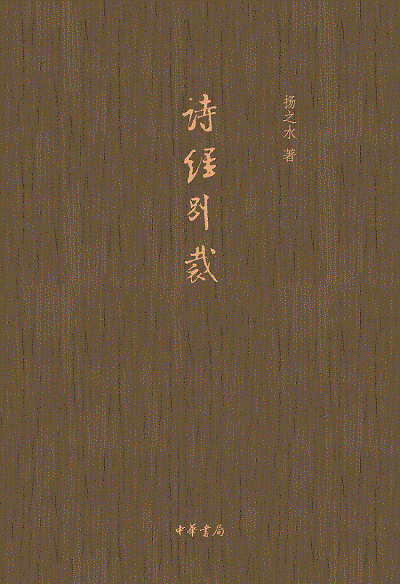 扬之水 著
诗经别裁
中华书局